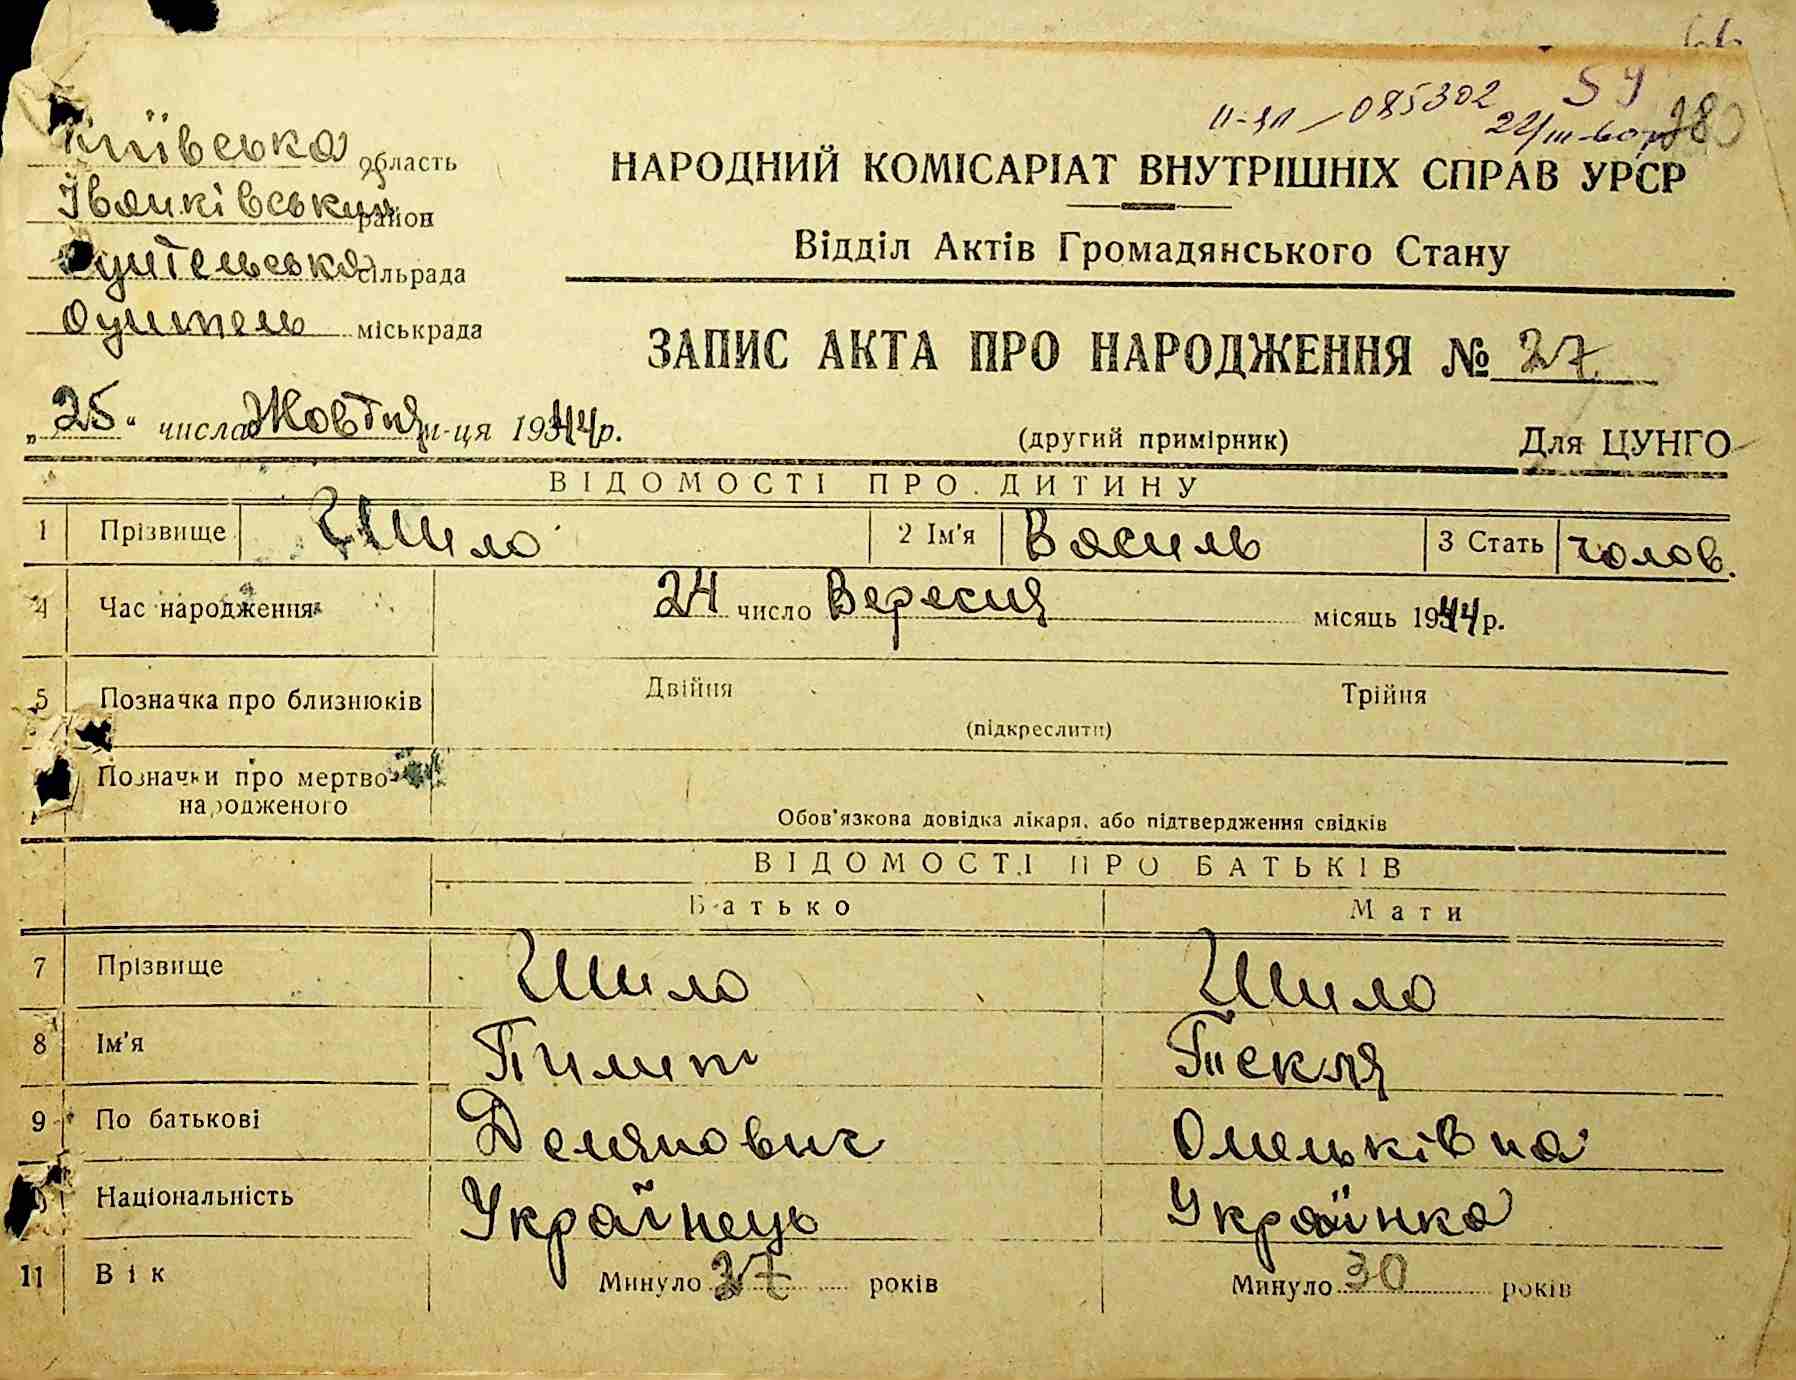 54
II-ЯЛ 085302
280
Київська область
Іванківський район
Оцительська сільрада
Оцитель міськрада
НАРОДНИЙ КОМІСАРІАТ ВНУТРІШНІХ СПРАВ УРСР
Відділ Актів Громадянського Стану
ЗАПИС АКТА ПРО НАРОДЖЕННЯ № 27
„25" числа Жовтня м-ця 1944 р.
(другий примірник)
Для ЦУНГО
ВІДОМОСТІ ПРО ДИТИНУ
1 Прізвище Шило 2 Ім'я Василь 3 Стать чолов.
4 Час народження 24 число Вересня місяць 1944 р.
5 Позначка про близнюків Двійня Трійня
(підкреслити)
Позначки про мертвонародженого
Обов'язкова довідка лікаря, або підтвердження свідків
ВІДОМОСТІ ПРО БАТЬКІВ
Батько Мати
7 Прізвище Шило Шило
8 Ім'я Пилип Текля
9 По батькові Демянович Омельківна
Національність Українець Українка
11 Вік Минуло 37 років Минуло 30 років